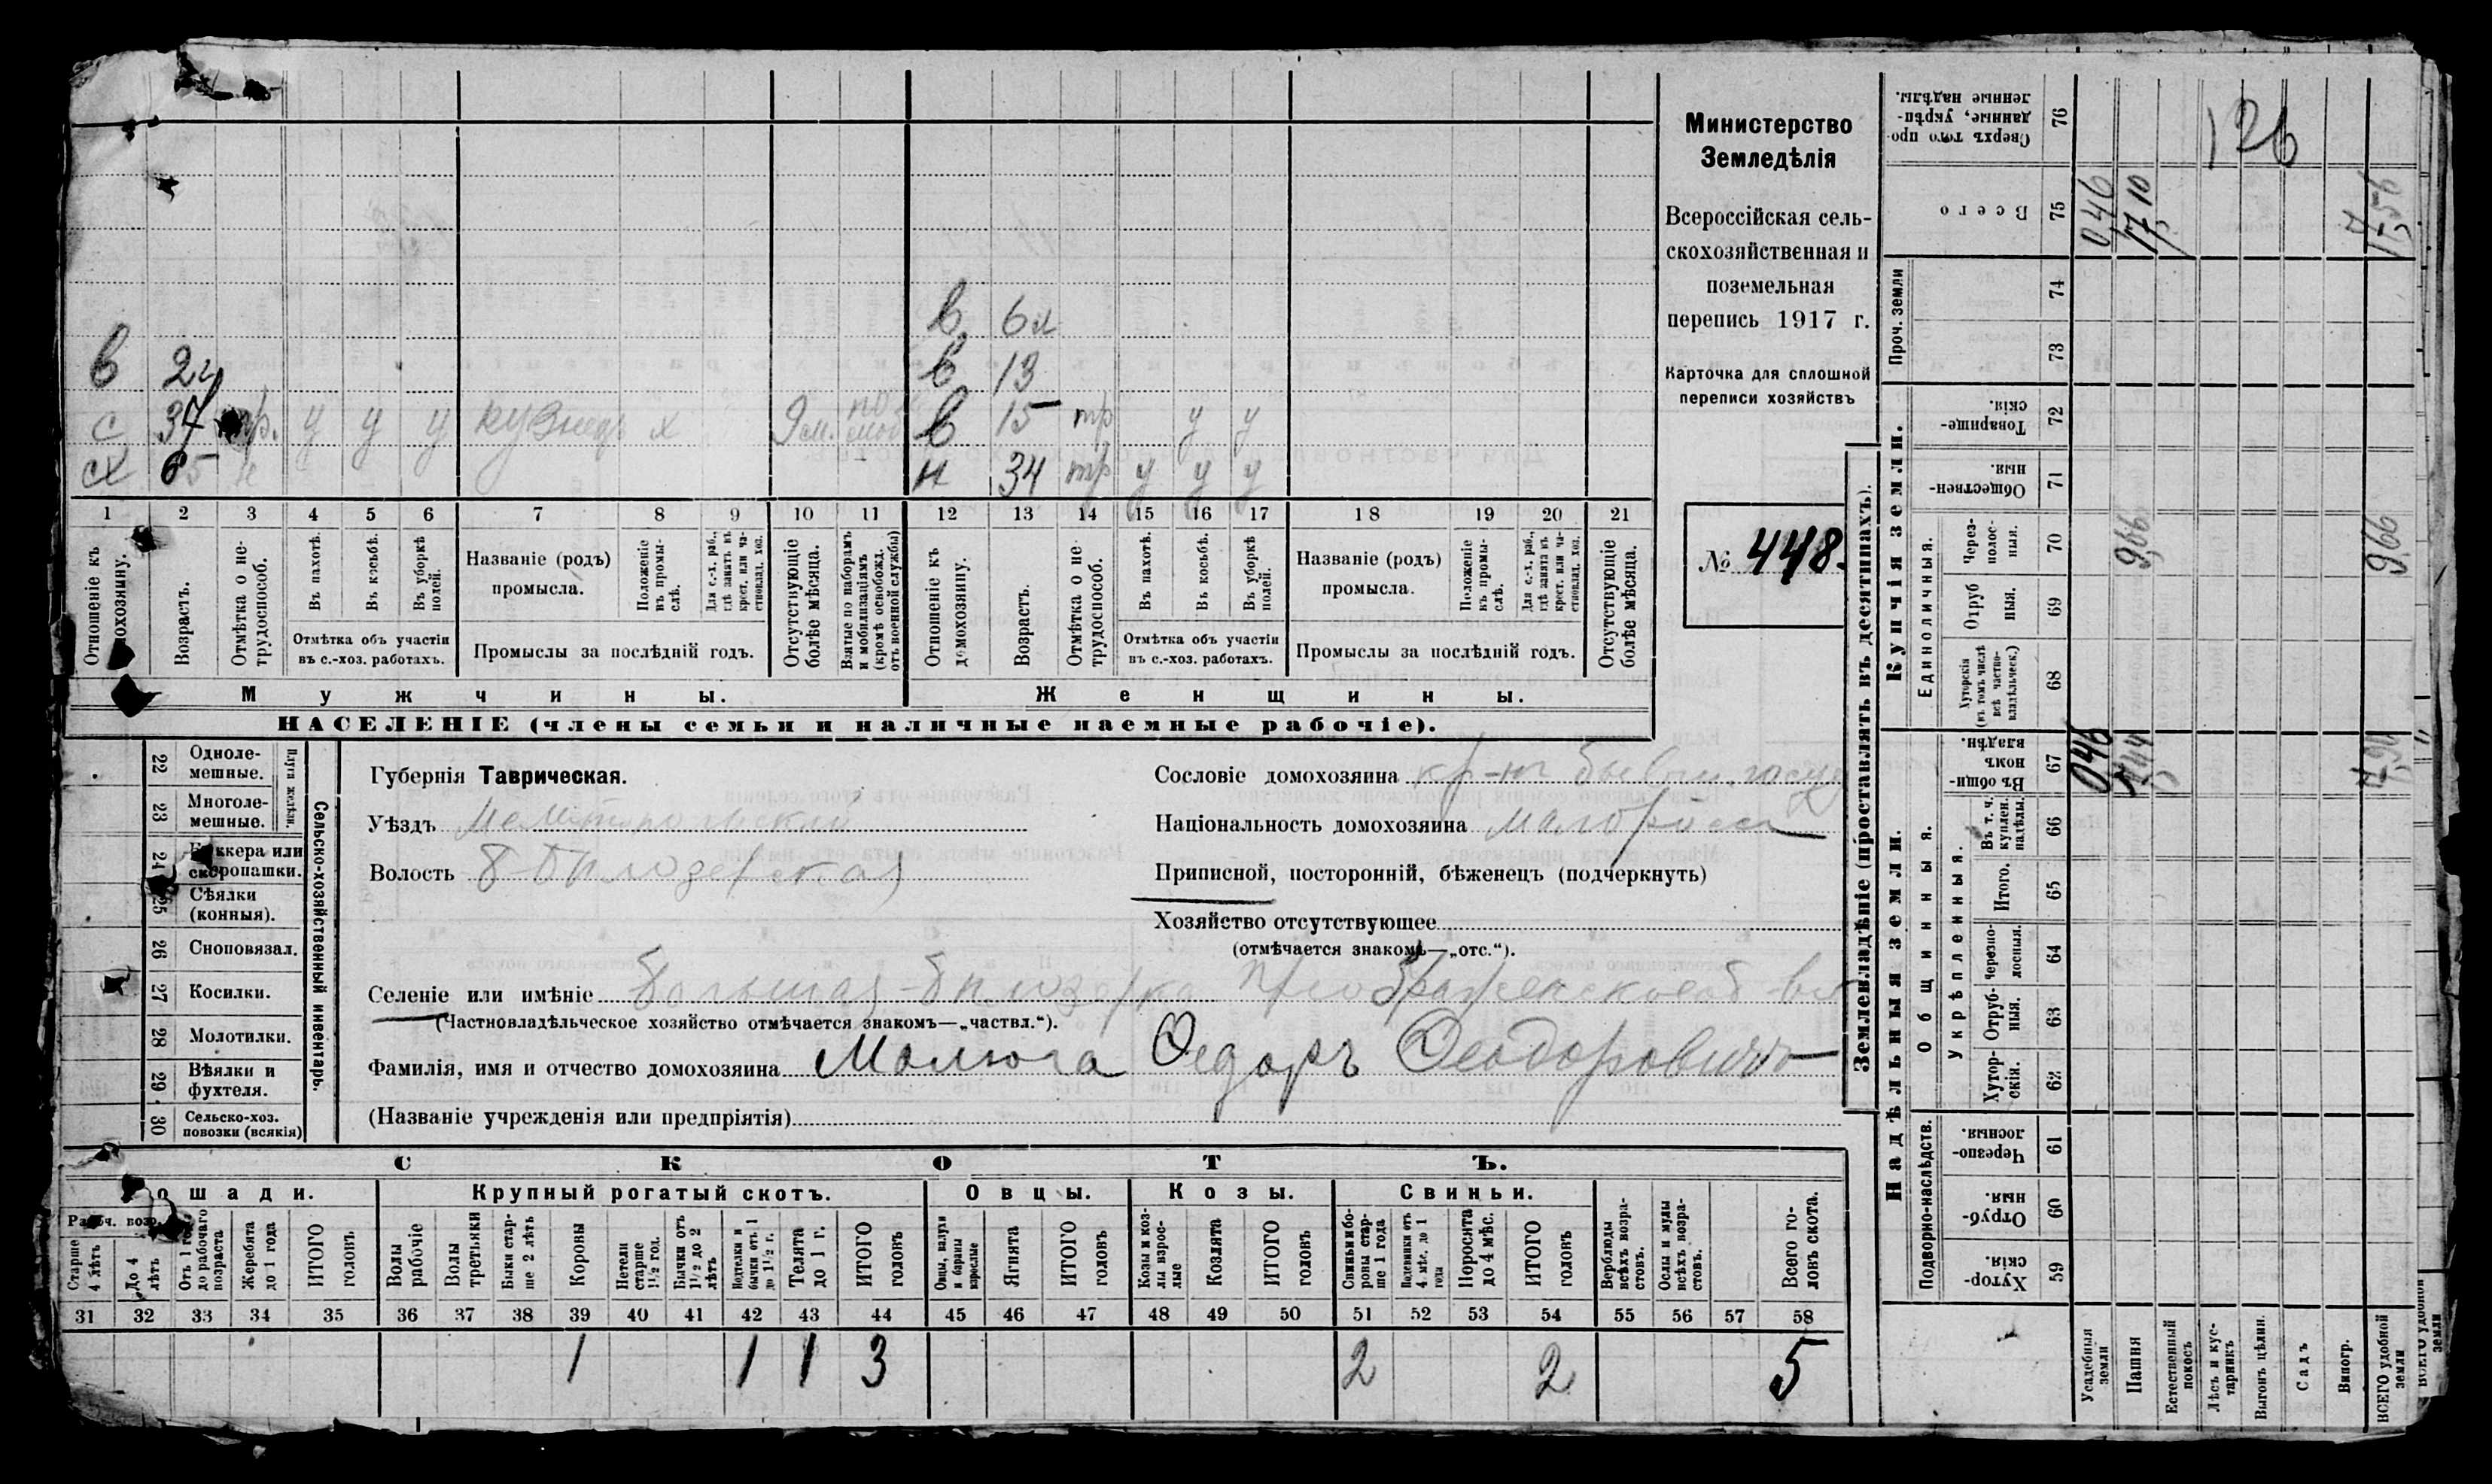 в 6 м
в 2 г в 13
с 37 тр. у у у кузнец х 9 м. в 15 тр у у
сх 65 н н 34 тр у у у
1 2 3 4 5 6 7 8 9 10 11 12 13 14 15 16 17 18 19 20 21
Отношеніе къ домохозяину.
Возрастъ.
Отмѣтка о не-
трудоспособ.
Въ пахотѣ.
Въ косьбѣ.
Въ уборкѣ
полей.
Отмѣтка объ участіи
въ с.-хоз. работахъ.
Названіе (родъ)
промысла.
Положеніе
въ промы-
слѣ.
Для с.-х. раб.,
гдѣ занятъ въ
крест. или ча-
стновлад. хоз.
Промыслы за послѣдній годъ.
Отсутствующіе
болѣе мѣсяца.
Взятые по наборамъ
и мобилизаціямъ
(кромѣ освобожд.
отъ военной службы)
Отношеніе къ
домохозяину.
Возрастъ.
Отмѣтка о не-
трудоспособ.
Въ пахотѣ.
Въ косьбѣ.
Въ уборкѣ
полей.
Отмѣтка объ участіи
въ с.-хоз. работахъ.
Названіе (родъ)
промысла.
Положеніе
въ промы-
слѣ.
Для с.-х. раб.,
гдѣ занята въ
крест. или ча-
стновлад. хоз.
Промыслы за послѣдній годъ.
Отсутствующіе
болѣе мѣсяца.
Мужчины.
Женщины.
НАСЕЛЕНІЕ (члены семьи и наличные наемные рабочіе).
Министерство
Земледѣлія
Всероссійская сель-
скохозяйственная и
поземельная
перепись 1917 г.
Карточка для сплошной
переписи хозяйствъ
№ 448.
22 Одноле-
мешные.
23 Многоле-
мешные.
Плуги желѣзн.
24 Буккера или
скоропашки.
25 Сѣялки
(конныя).
26 Сноповязал.
27 Косилки.
28 Молотилки.
29 Вѣялки и
фухтеля.
30 Сельско-хоз.
повозки (всякія)
Сельско-хозяйственный инвентарь.
Губернія Таврическая.
Уѣздъ Мелитопольскій
Волость Б Бѣлозерская
Селеніе или имѣніе Большая-Бѣлозерка Преображенское об-во
(Частновладѣльческое хозяйство отмѣчается знакомъ—„частвл.“).
Фамилія, имя и отчество домохозяина Малюга Ѳедоръ Ѳеодоровичъ
(Названіе учрежденія или предпріятія)
Сословіе домохозяина кр-нъ бывш.
Національность домохозяина малоросс
Приписной, посторонній, бѣженецъ (подчеркнуть)
Хозяйство отсутствующее
(отмѣчается знакомъ—„отс.“).
СКОТЪ.
Лошади.
Рабоч. возр.
Старше
4 лѣтъ
До 4
лѣтъ
Отъ 1 года
до рабочаго
возраста
Жеребята
до 1 года
ИТОГО
головъ
Крупный рогатый скотъ.
Волы
рабочіе
Волы
третьяки
Быки стар-
ше 2 лѣтъ
Коровы
Нетели
старше
1½ год.
Бычки отъ
1½ до 2
лѣтъ
Нетелки и
бычки отъ 1
до 1½ г.
Телята
до 1 г.
ИТОГО
головъ
Овцы.
Овцы, валухи
и бараны
взрослые
Ягнята
ИТОГО
головъ
Козы.
Козы и коз-
лы взрос-
лые
Козлята
ИТОГО
головъ
Свиньи.
Свиньи и бо-
ровы стар-
ше 1 года
Подсвинки отъ
4 мѣс. до 1
года
Поросята
до 4 мѣс.
ИТОГО
головъ
Верблюды
всѣхъ возра-
стовъ.
Ослы и мулы
всѣхъ возра-
стовъ.
Всего го-
ловъ скота.
31 32 33 34 35 36 37 38 39 40 41 42 43 44 45 46 47 48 49 50 51 52 53 54 55 56 57 58
1 1 1 3 2 2 5
Землевладѣніе (проставлять въ десятинахъ).
Надѣльныя земли.
Купчія земли.
Проч. земли
Подворно-наслѣдств.
Общинныя.
Укрѣпленныя.
Единоличныя.
Хутор-
скія. 59
Отруб-
ныя. 60
Черезпо-
лосныя. 61
Хутор-
скія. 62
Отруб-
ныя. 63
Черезпо-
лосныя. 64
Итого. 65
Въ т. ч.
куплен.
надѣлы. 66
Въ общин-
номъ
владѣн. 67
Хуторскія
(въ томъ числѣ
всѣ частно-
владѣльческ.) 68
Отруб
ныя. 69
Через-
полос-
ныя. 70
Обществен-
ныя. 71
Товарище-
скія. 72
73
74
Всего 75
Сверхъ того про-
данные, укрѣп-
ленные надѣлы. 76
Усадебная
земли
Пашня
Естественный
покосъ
Лѣсъ и кус-
тарникъ
Выгонъ цѣлин.
Садъ
Виногр.
ВСЕГО удобной
земли
046 046
9,66 17,10
7,90 9,66 17,56
126